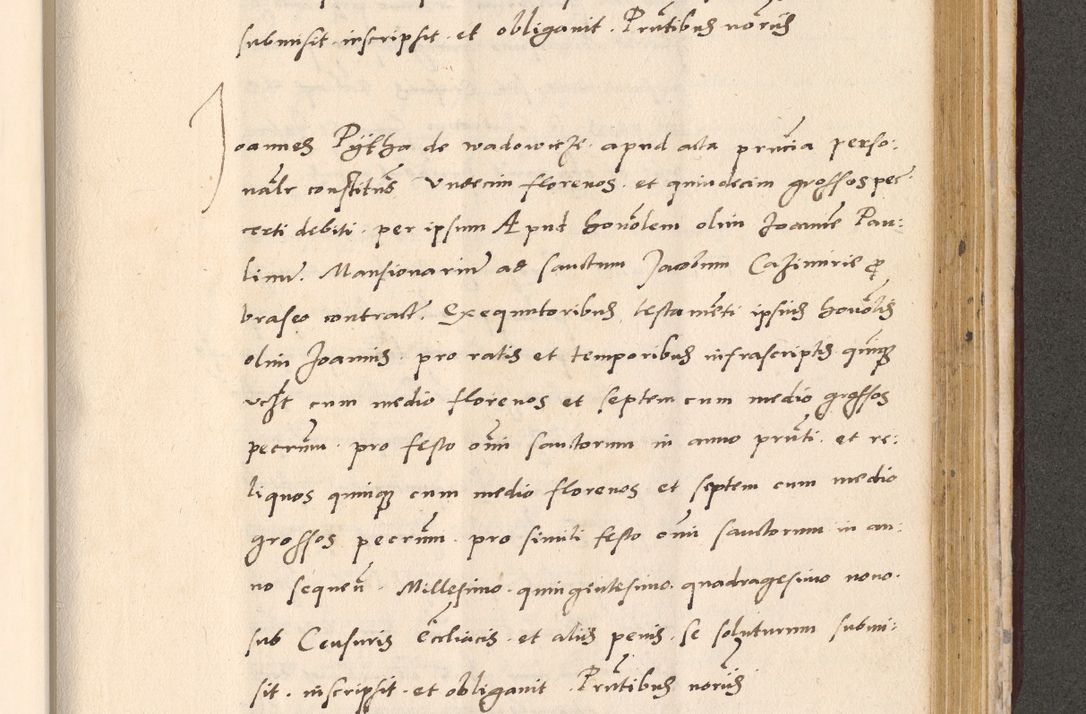 submisit · inscripsit · et obligauit · Prntibus norus
Joannes Pÿtha de wadowicze · apud acta prncia perso:
nalr constitus vndecim florenos · et quindecim grossos pec
certi debiti · per ipsum Apud honolem olim Joannē Pau:
linu · Mansionariu ad sanctum Jacobum Cazimirie pro
braseo contract · Exequutoribus testamēti ipsius honolis
olim Joannis · pro ratis et temporibus infrascriptis quinq
vczt cum medio florenos et septem cum medio grossos
pecrum · pro festo oīm sanctorum in anno prnti · et re:
liquos quinq cum medio florenos et septem cum medio
grossos pecrum · pro simili festo oīm sanctorum in an:
no sequen · Millesimo · quingentesimo · quadragesimo nono ·
sub Censuris Eccliacis · et aliis penis · se soluturum submi:
sit · inscripsit · et obligauit · Prntibus norus